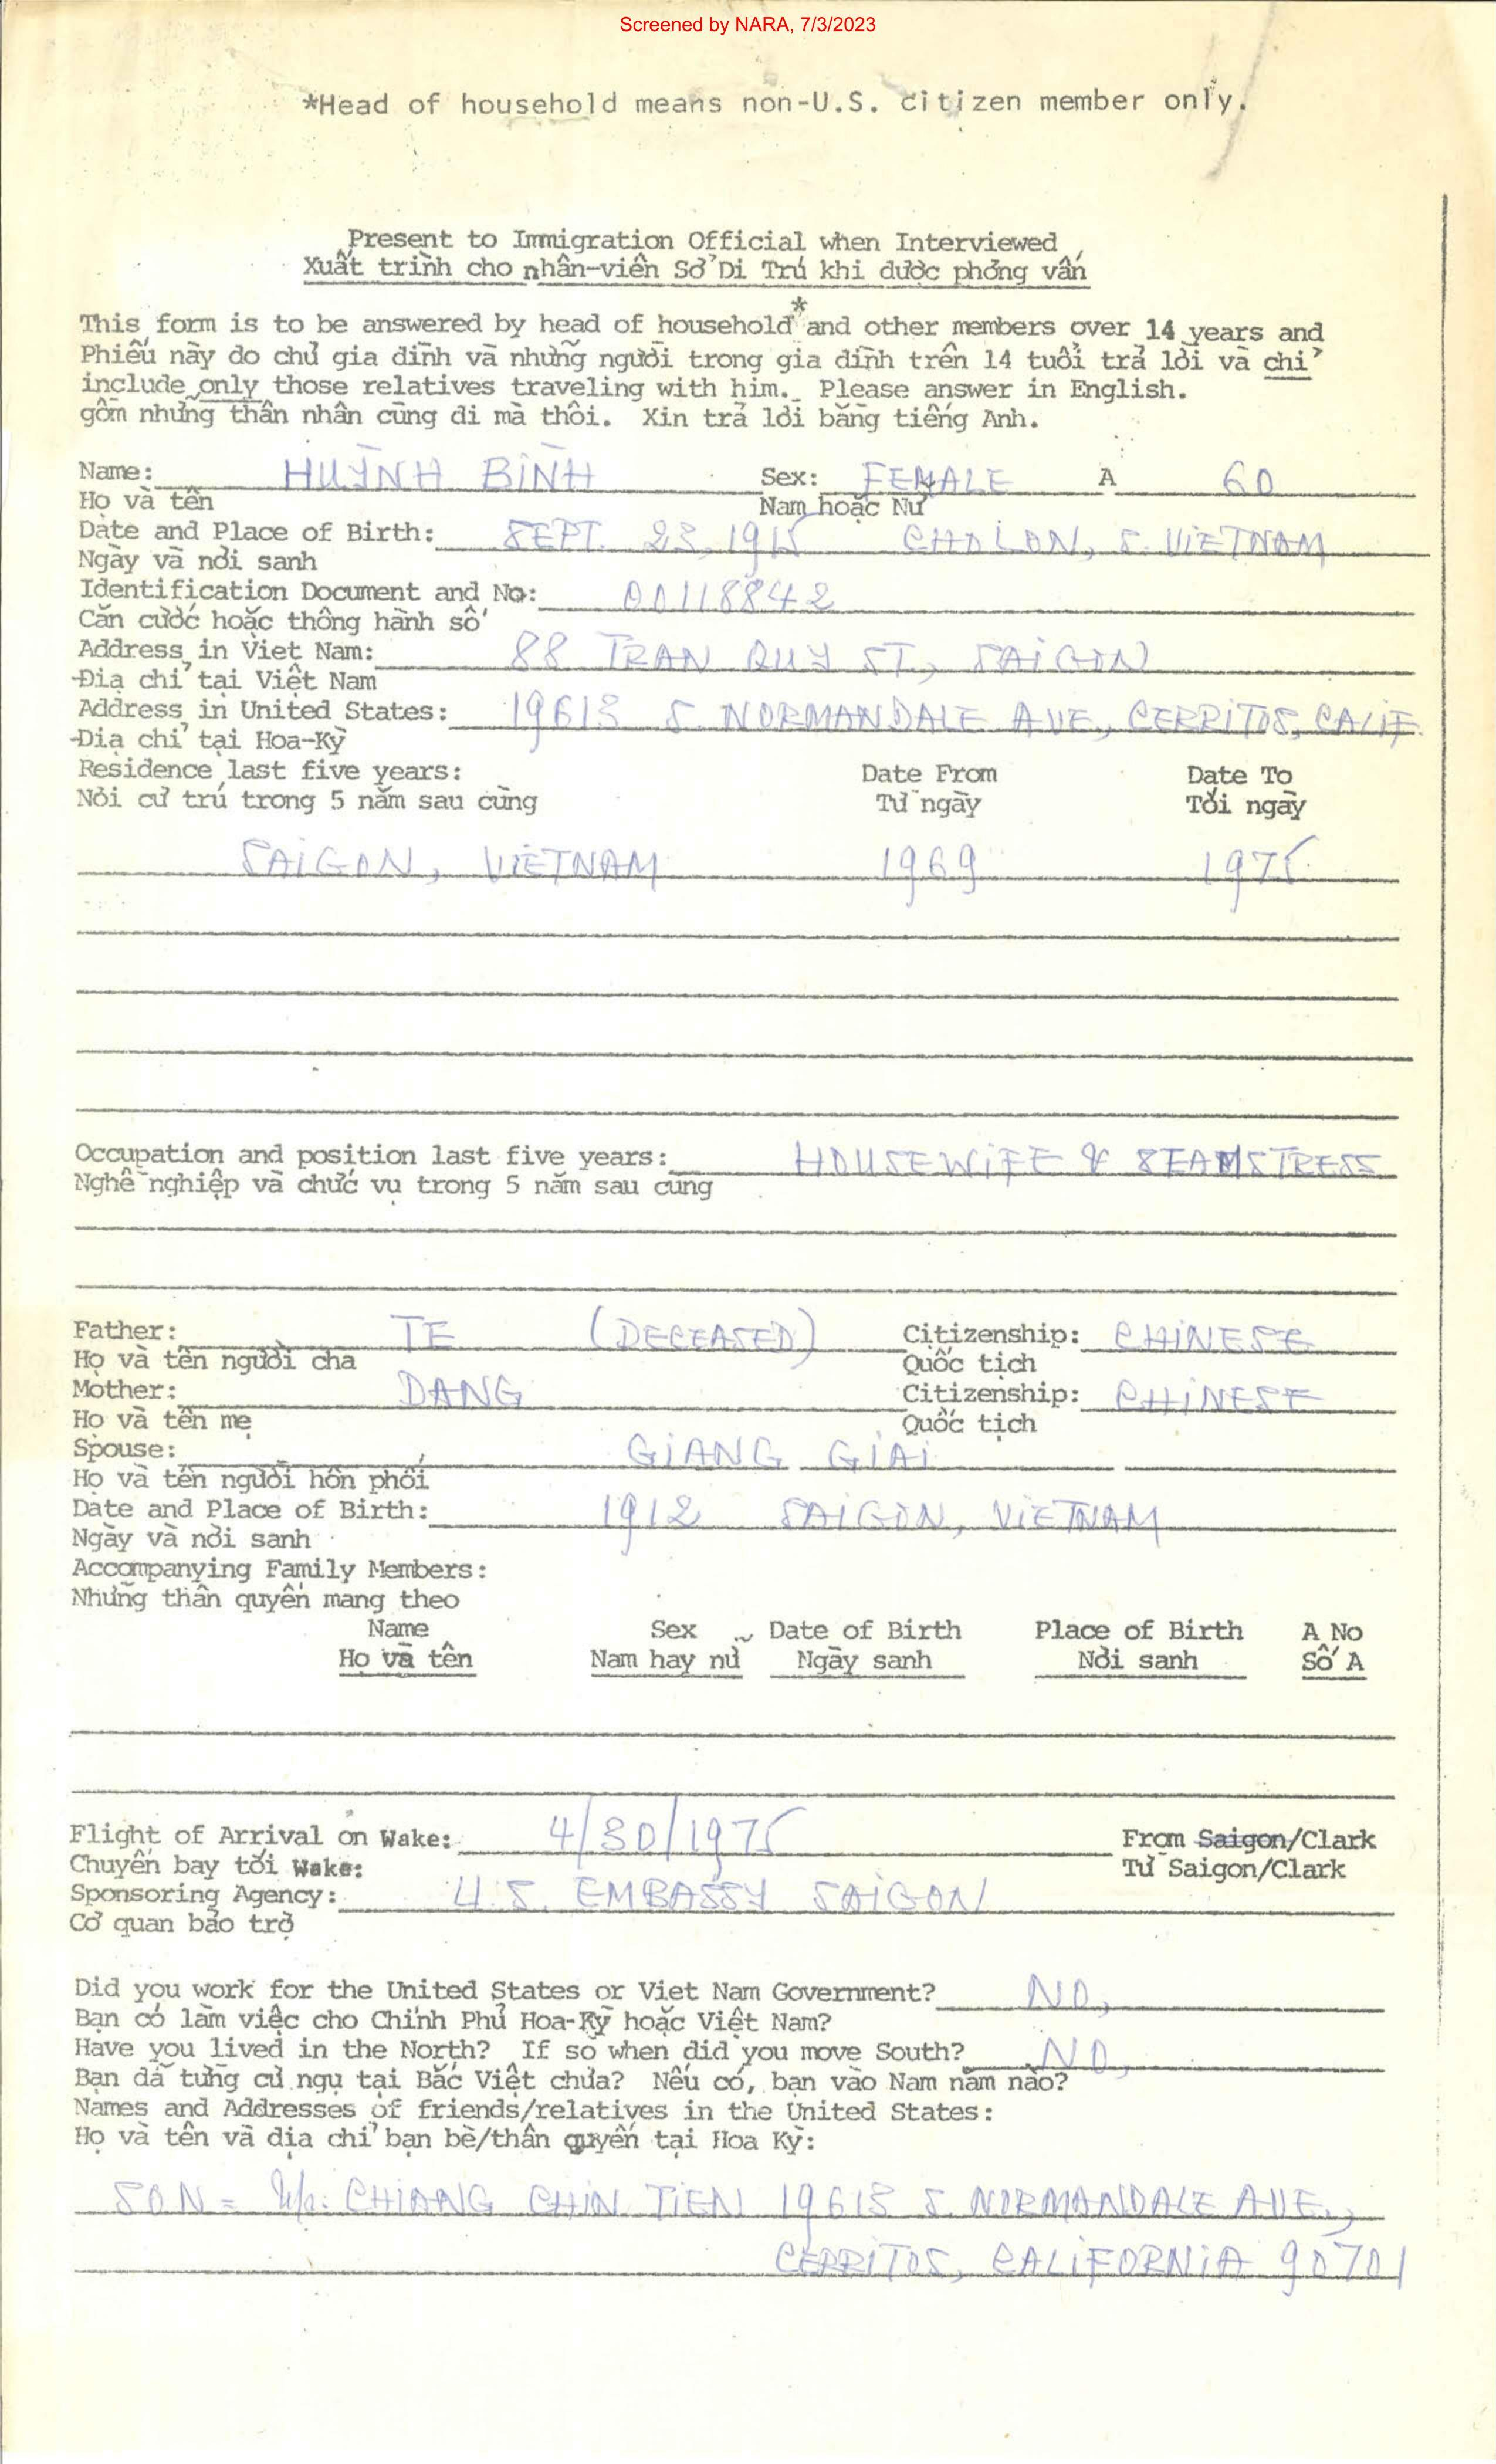 Screened by NARA, 7/3/2023
*Head of household means non-U.S. citizen member only.
Present to Immigration Official when Interviewed
Xuất trình cho nhân-viên Sở Di Trú khi được phỏng vấn
*
This form is to be answered by head of household and other members over 14 years and
Phiếu này do chủ gia đình và những người trong gia đình trên 14 tuổi trả lời và chỉ
include only those relatives traveling with him. Please answer in English.
gồm những thân nhân cùng đi mà thôi. Xin trả lời bằng tiếng Anh.
Name: HUỲNH BÌNH Sex: FEMALE A 60
Họ và tên Nam hoặc Nữ
Date and Place of Birth: SEPT. 23, 1915 CHOLON, S. VIETNAM
Ngày và nơi sanh
Identification Document and No: 00118842
Căn cước hoặc thông hành số
Address in Viet Nam: 88 TRAN QUY ST, SAIGON
Địa chỉ tại Việt Nam
Address in United States: 19613 S. NORMANDALE AVE., CERRITOS, CALIF.
Địa chỉ tại Hoa-Kỳ
Residence last five years: Date From Date To
Nơi cư trú trong 5 năm sau cùng Từ ngày Tới ngày
SAIGON, VIETNAM 1969 1975
Occupation and position last five years: HOUSEWIFE & SEAMSTRESS
Nghề nghiệp và chức vụ trong 5 năm sau cùng
Father: TE (DECEASED) Citizenship: CHINESE
Họ và tên người cha Quốc tịch
Mother: DANG Citizenship: CHINESE
Họ và tên mẹ Quốc tịch
Spouse: GIANG GIAI
Họ và tên người hôn phối
Date and Place of Birth: 1912 SAIGON, VIETNAM
Ngày và nơi sanh
Accompanying Family Members:
Những thân quyến mang theo
Name Sex Date of Birth Place of Birth A No
Họ và tên Nam hay nữ Ngày sanh Nơi sanh Số A
Flight of Arrival on Wake: 4/30/1975 From Saigon/Clark
Chuyến bay tới Wake: Từ Saigon/Clark
Sponsoring Agency: U.S. EMBASSY SAIGON
Cơ quan bảo trợ
Did you work for the United States or Viet Nam Government? NO,
Bạn có làm việc cho Chính Phủ Hoa-Kỳ hoặc Việt Nam?
Have you lived in the North? If so when did you move South? NO,
Bạn đã từng cư ngụ tại Bắc Việt chưa? Nếu có, bạn vào Nam năm nào?
Names and Addresses of friends/relatives in the United States:
Họ và tên và địa chỉ bạn bè/thân quyến tại Hoa Kỳ:
SON = CHIANG CHIN TIEN 19613 S. NORMANDALE AVE.,
CERRITOS, CALIFORNIA 90701